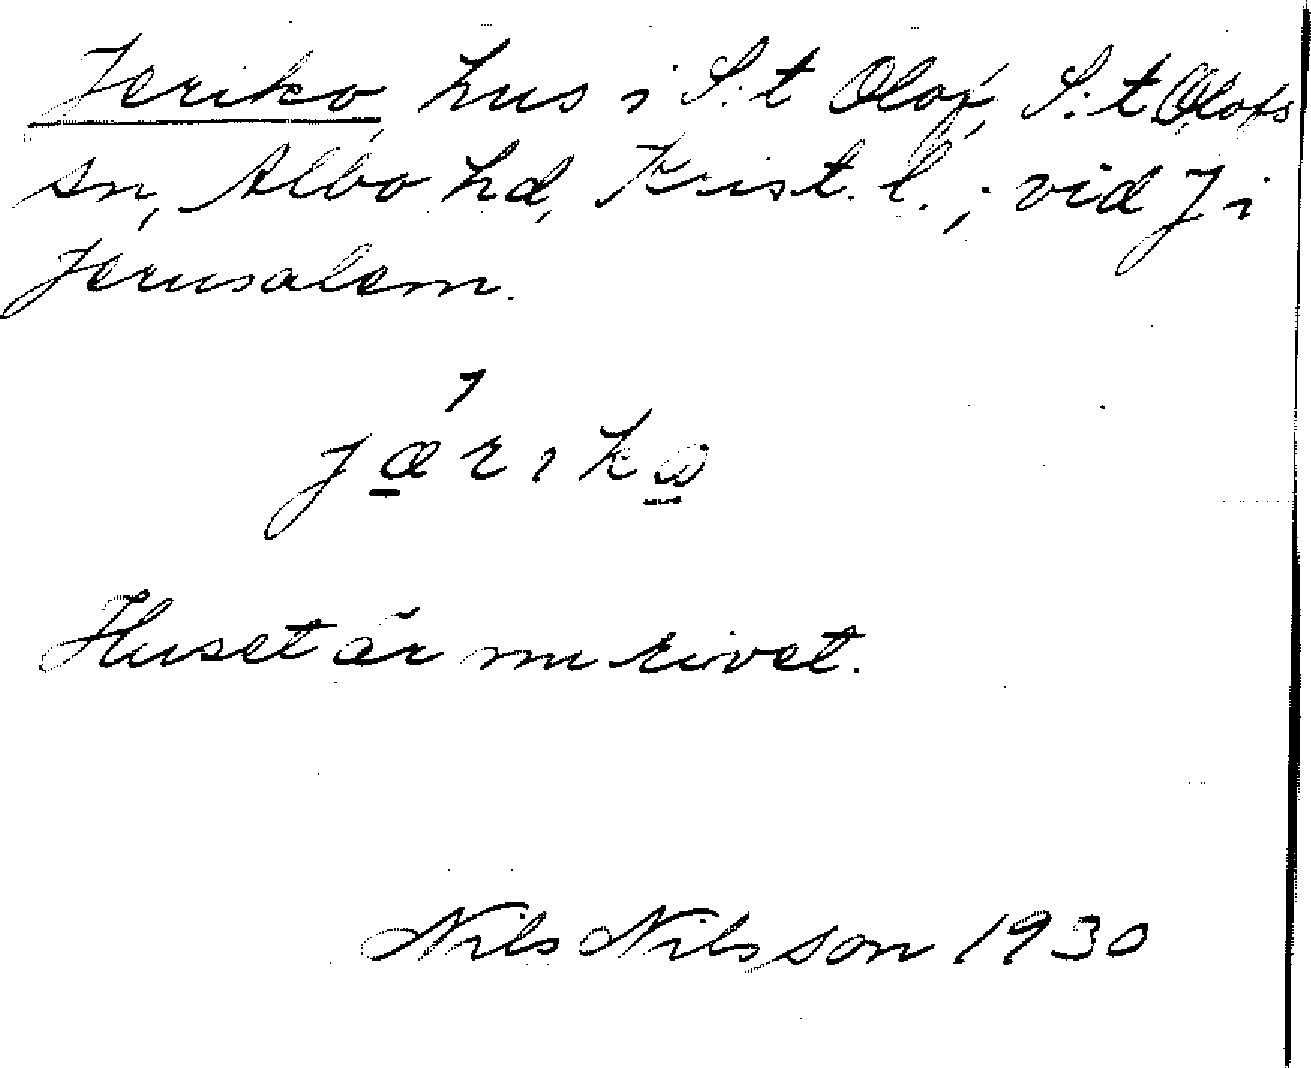 Jeriko, hus i S:t Olof, S:t Olofs
sn, Albo hd, Krist. l.; vid J i
Jerusalem.
jæriko
Huset är nu rivet.
Nils Nilsson 1930